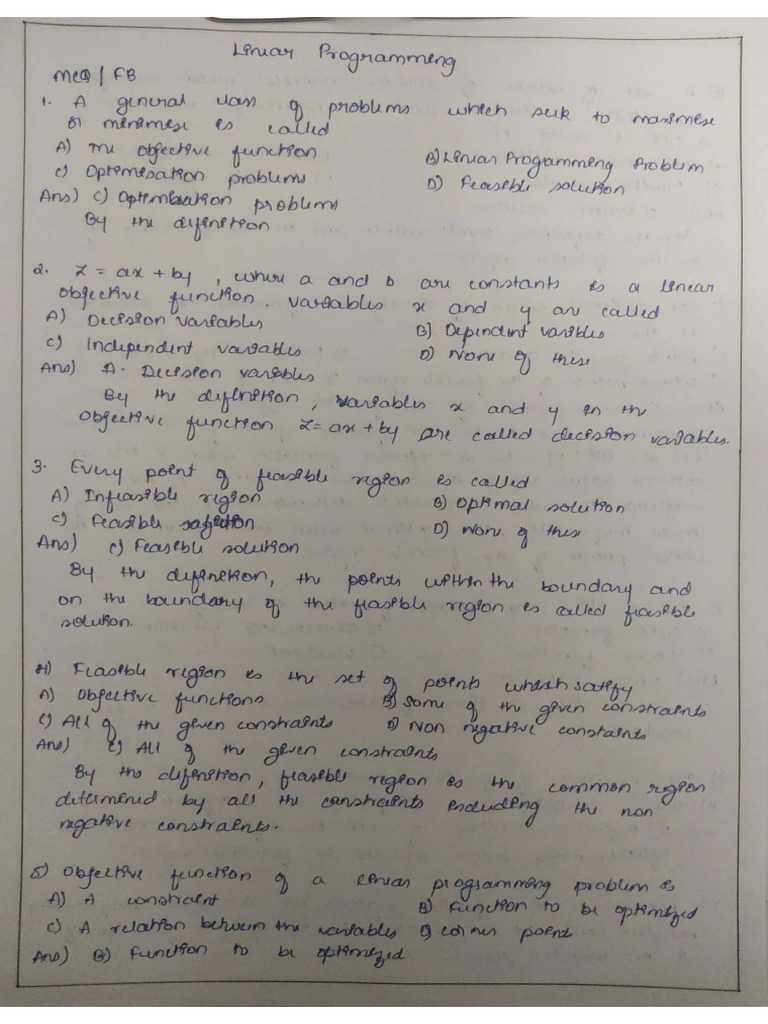 Linear Programming
MCQ | FB
1. A general class of problems which seek to maximise
or minimise is called
A) The Objective function B) Linear Progamming Problem
C) Optimisation problems D) Feasible solution
Ans) C) Optimisation problems
By the definition
2. Z = ax + by, where a and b are constants is a linear
objective function. Variables x and y are called
A) Decision variables B) Dependent varibles
C) Independent variables D) None of this
Ans) A. Decision variables
By the definition, variables x and y in the
objective function Z = ax + by are called decision variables.
3. Every point of feasible region is called
A) Infeasible region B) Optimal solution
C) Feasible D) None of this
Ans) C) Feasible solution
By the definition, the points within the boundary and
on the boundary of the feasible region is called feasible
solution.
4) Feasible region is the set of points which satisfy
A) Objective functions B) Some of the given constraints
C) All of the given constraints D) Non negative constaints
Ans) C) All of the given constraints
By the definition, feasible region is the common region
determined by all the constraints including the non
negative constraints.
5) Objective function of a linear programming problem is
A) A constraint B) Function to be optimized
C) A relation between the variables D) Corner point
Ans) B) Function to be optimized